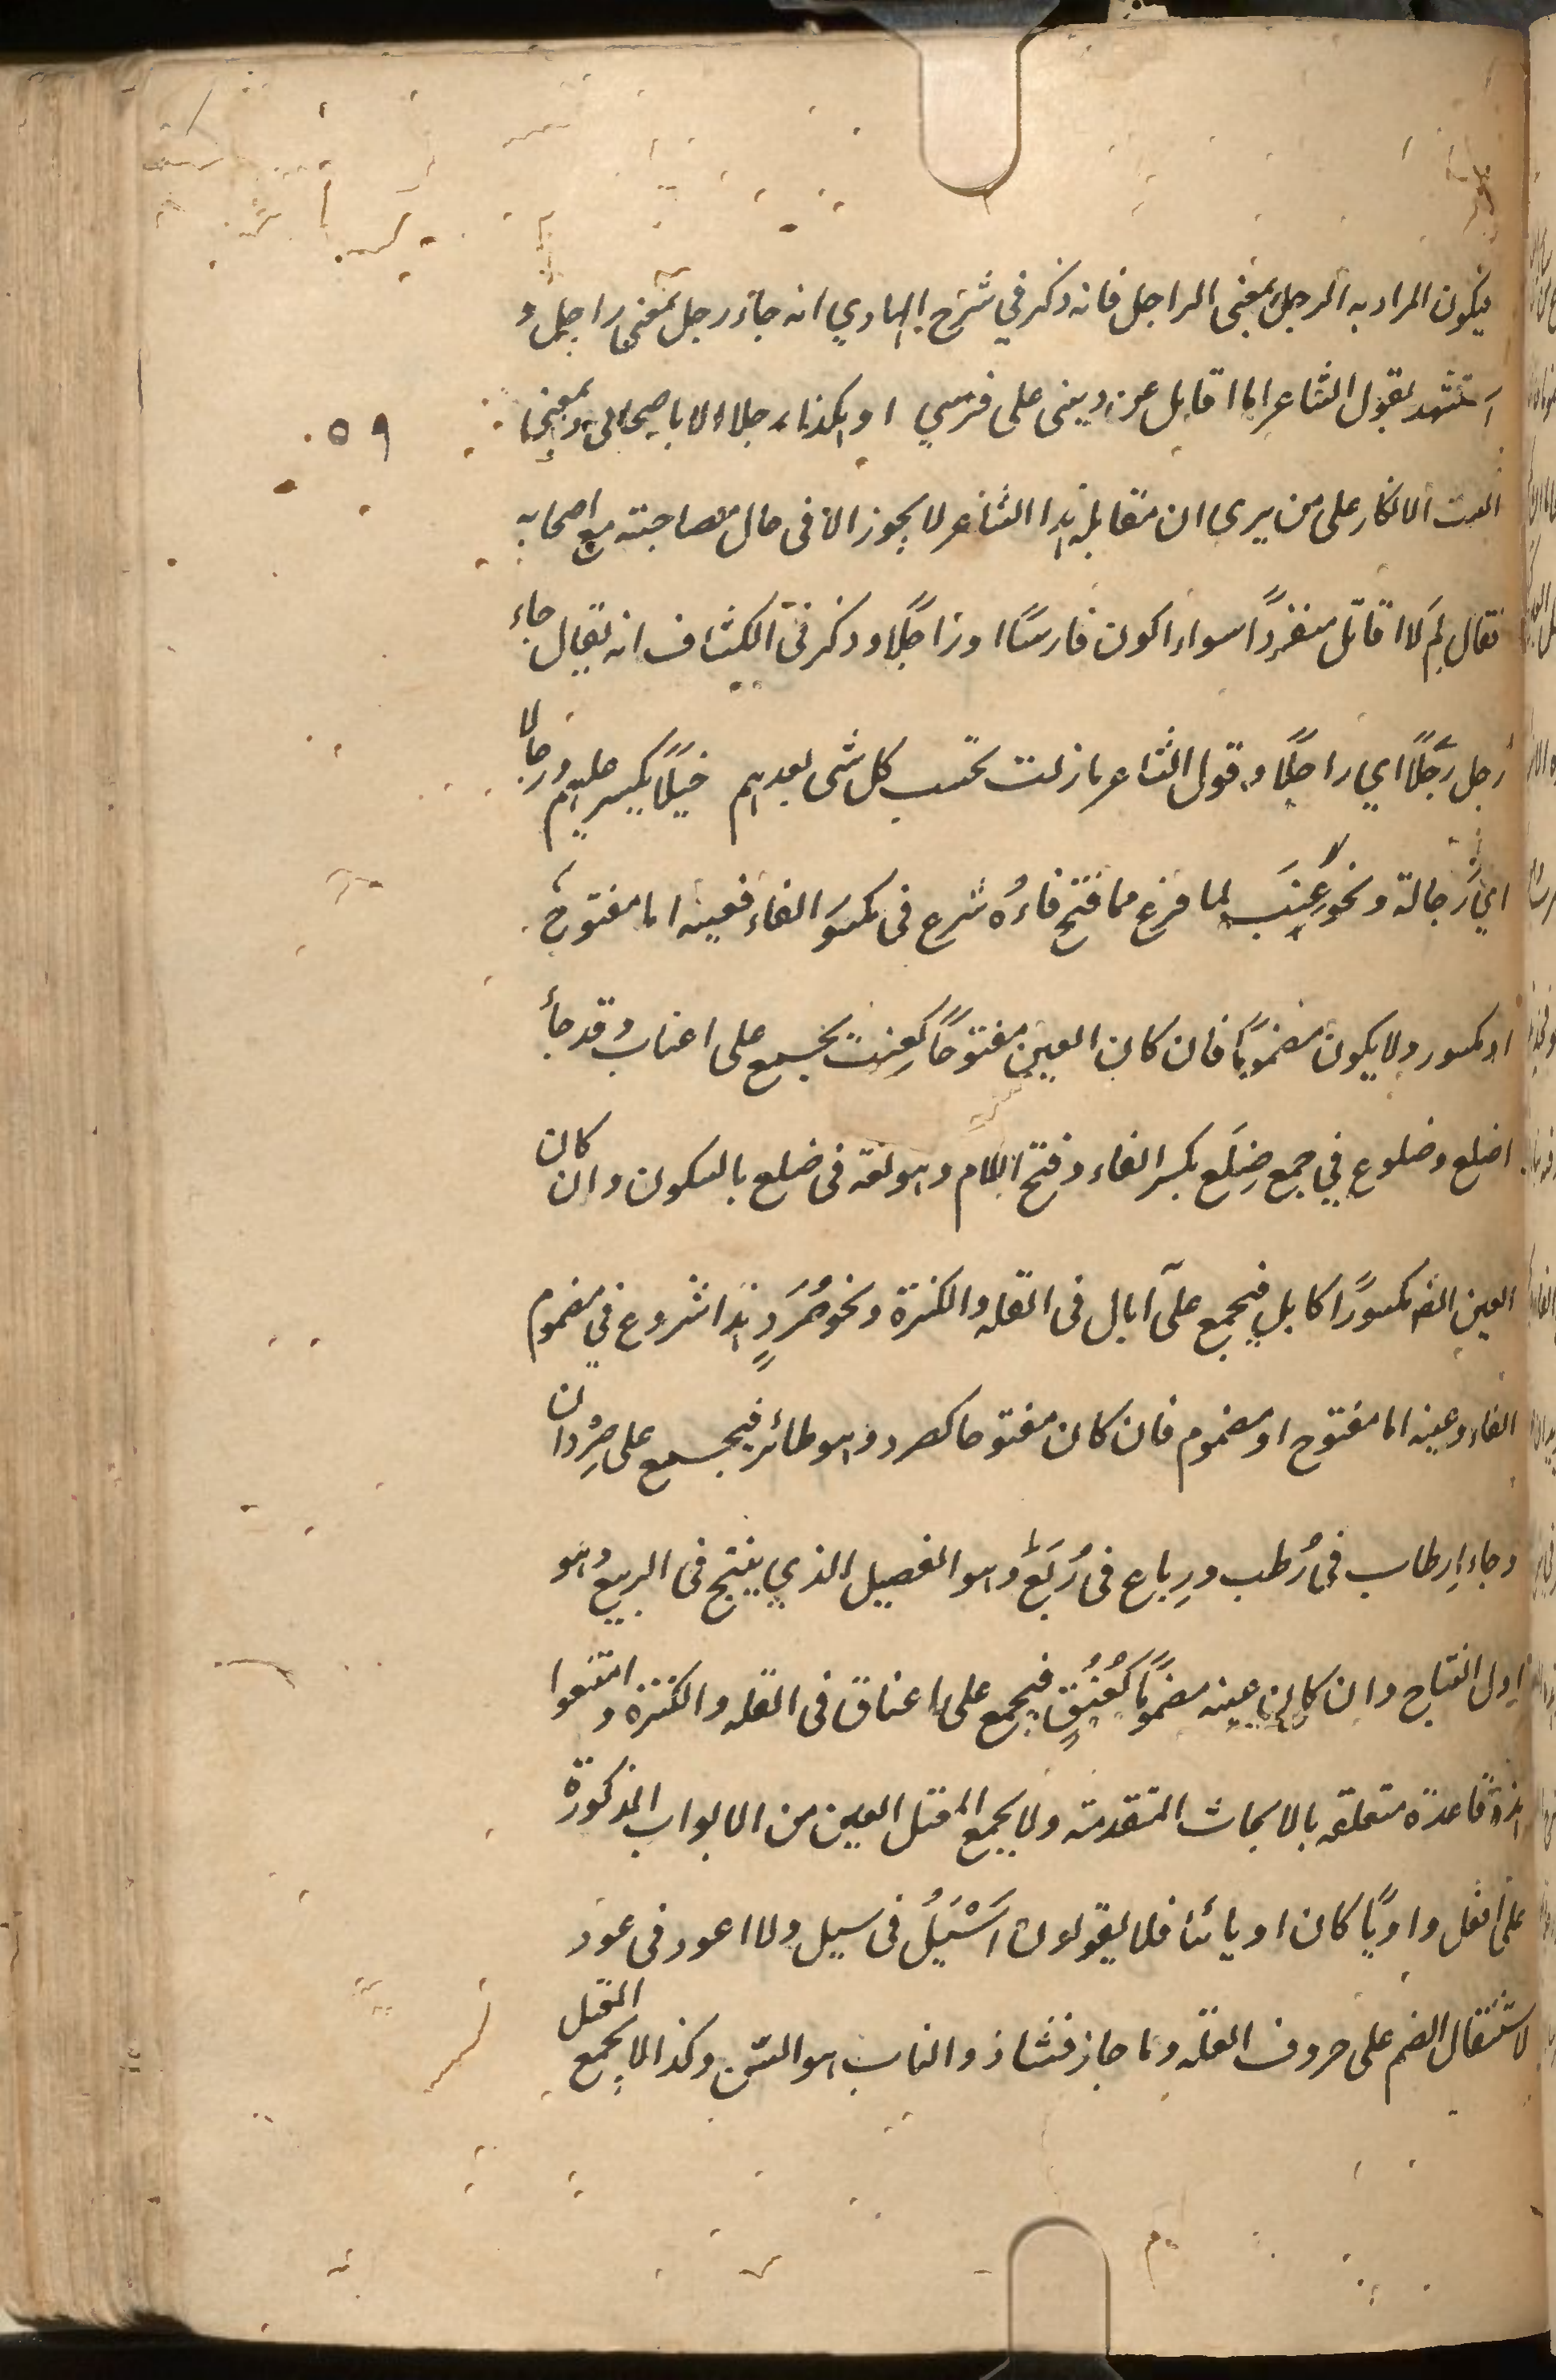 فيكون المراد به الرجل بمعنى الراجل فانه ذكر في شرح الهادي انه جاء رجل بمعنى راجل و
استشهد بقول الشاعر اما اقاتل عن ديني على فرسي او هكذا رجلا الا باصحابي ومعنى
البيت الانكار على من يرى ان مقابلة هذا الشاعر لا يجوز الا في حال مصاحبته مع اصحابه
فقال لم لا اقاتل منفردًا سواء اكون فارسًا او راجلًا وذكر في الكشاف انه يقال جاء
رجل رَجلًا اي راجلًا وقول الشاعر ما زلت تحسب كل شى بعدهم خيلًا تكر عليهم ورجالا
اي رَجالة ونحو عِنَب لما فرغ مما فتح فاءُه شرع فى مكسور الفاء فعينه اما مفتوح
او مكسور ولا يكون مضمومًا فان كان العين مفتوحًا كعِنب يجمع على اعناب وقد جأ
اضلع وضلوع في جمع ضِلَع بكسر الفاء وفتح اللام وهو لغة فى ضلع بالسكون وان كان
العين مكسورًا كابل فيجمع على آبال فى القلة والكثرة ونحو صُرَدٍ هذا شروع في مضموم
الفاء وعينه اما مفتوح او مضموم فان كان مفتوحا كصرد وهو طائر فيجمع على صِرْدان
وجاء ارطاب في رُطب ورِباع فى رُبَع وهو الفصيل الذي ينتج فى الربيع وهو
اول النتاج وان كان عينه مضمومًا كعُنُقٍ فيجمع على اعناق فى القلة والكثرة وامتنعوا
هذه قاعدة متعلقة بالابحاث المتقدمة ولا يجمع المعتل العين من الابواب المذكورة
على افعل واويًا كان او يائيا فلا يقولون اَسْيُلُ فى سيل ولا اعود فى عود
لاستثقال الضم على حروف العلة وما جاز فشاذ والناب هو السن وكذا لا يجمع المعتل
٥٩